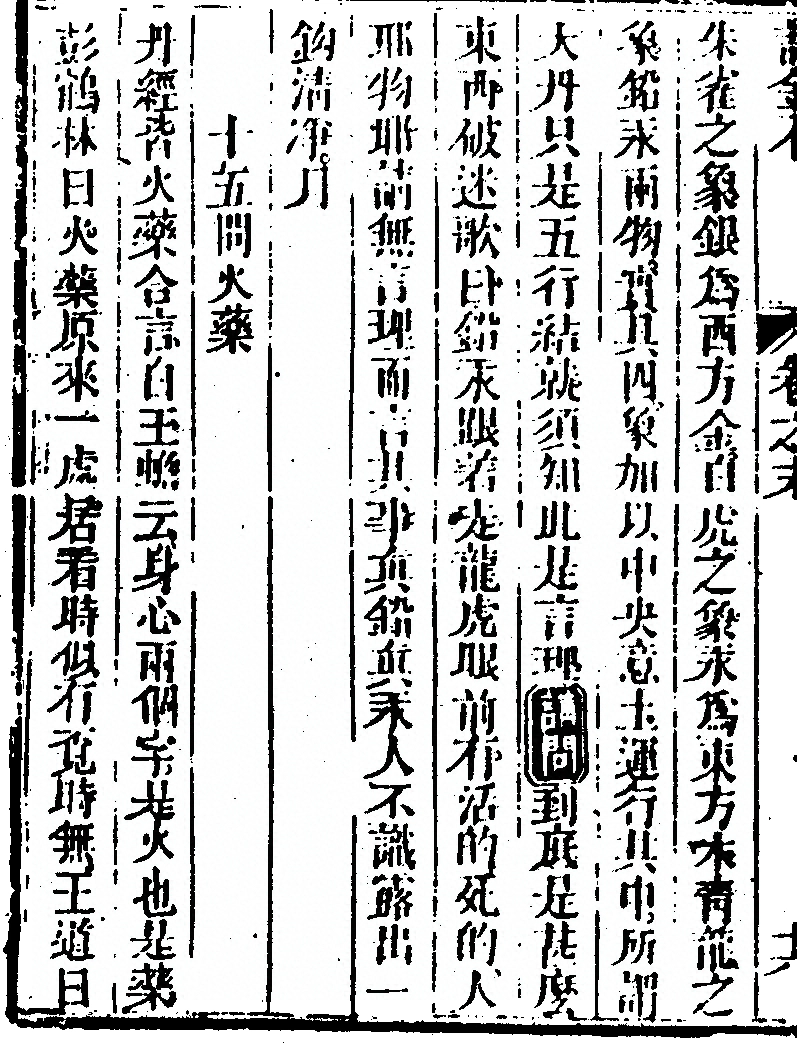 朱雀之象銀爲西方金白虎之象汞爲東方木青龍之
象鉛汞兩物實其四象加以中央意土運行其中所謂
大丹只是五行結就須知此是言理請問到底是甚麼
東西破迷歌曰鉛汞跟着走龍虎眼前存活的死的人
耶物耶請無言理而言其事真鉛真汞人不識露出一
鈎清凈月
十五問火藥
丹經皆火藥合言白玉蟾云身心兩個字是火也是藥
彭鶴林曰火藥原來一處居看時似有覓時無王道曰
卷之末